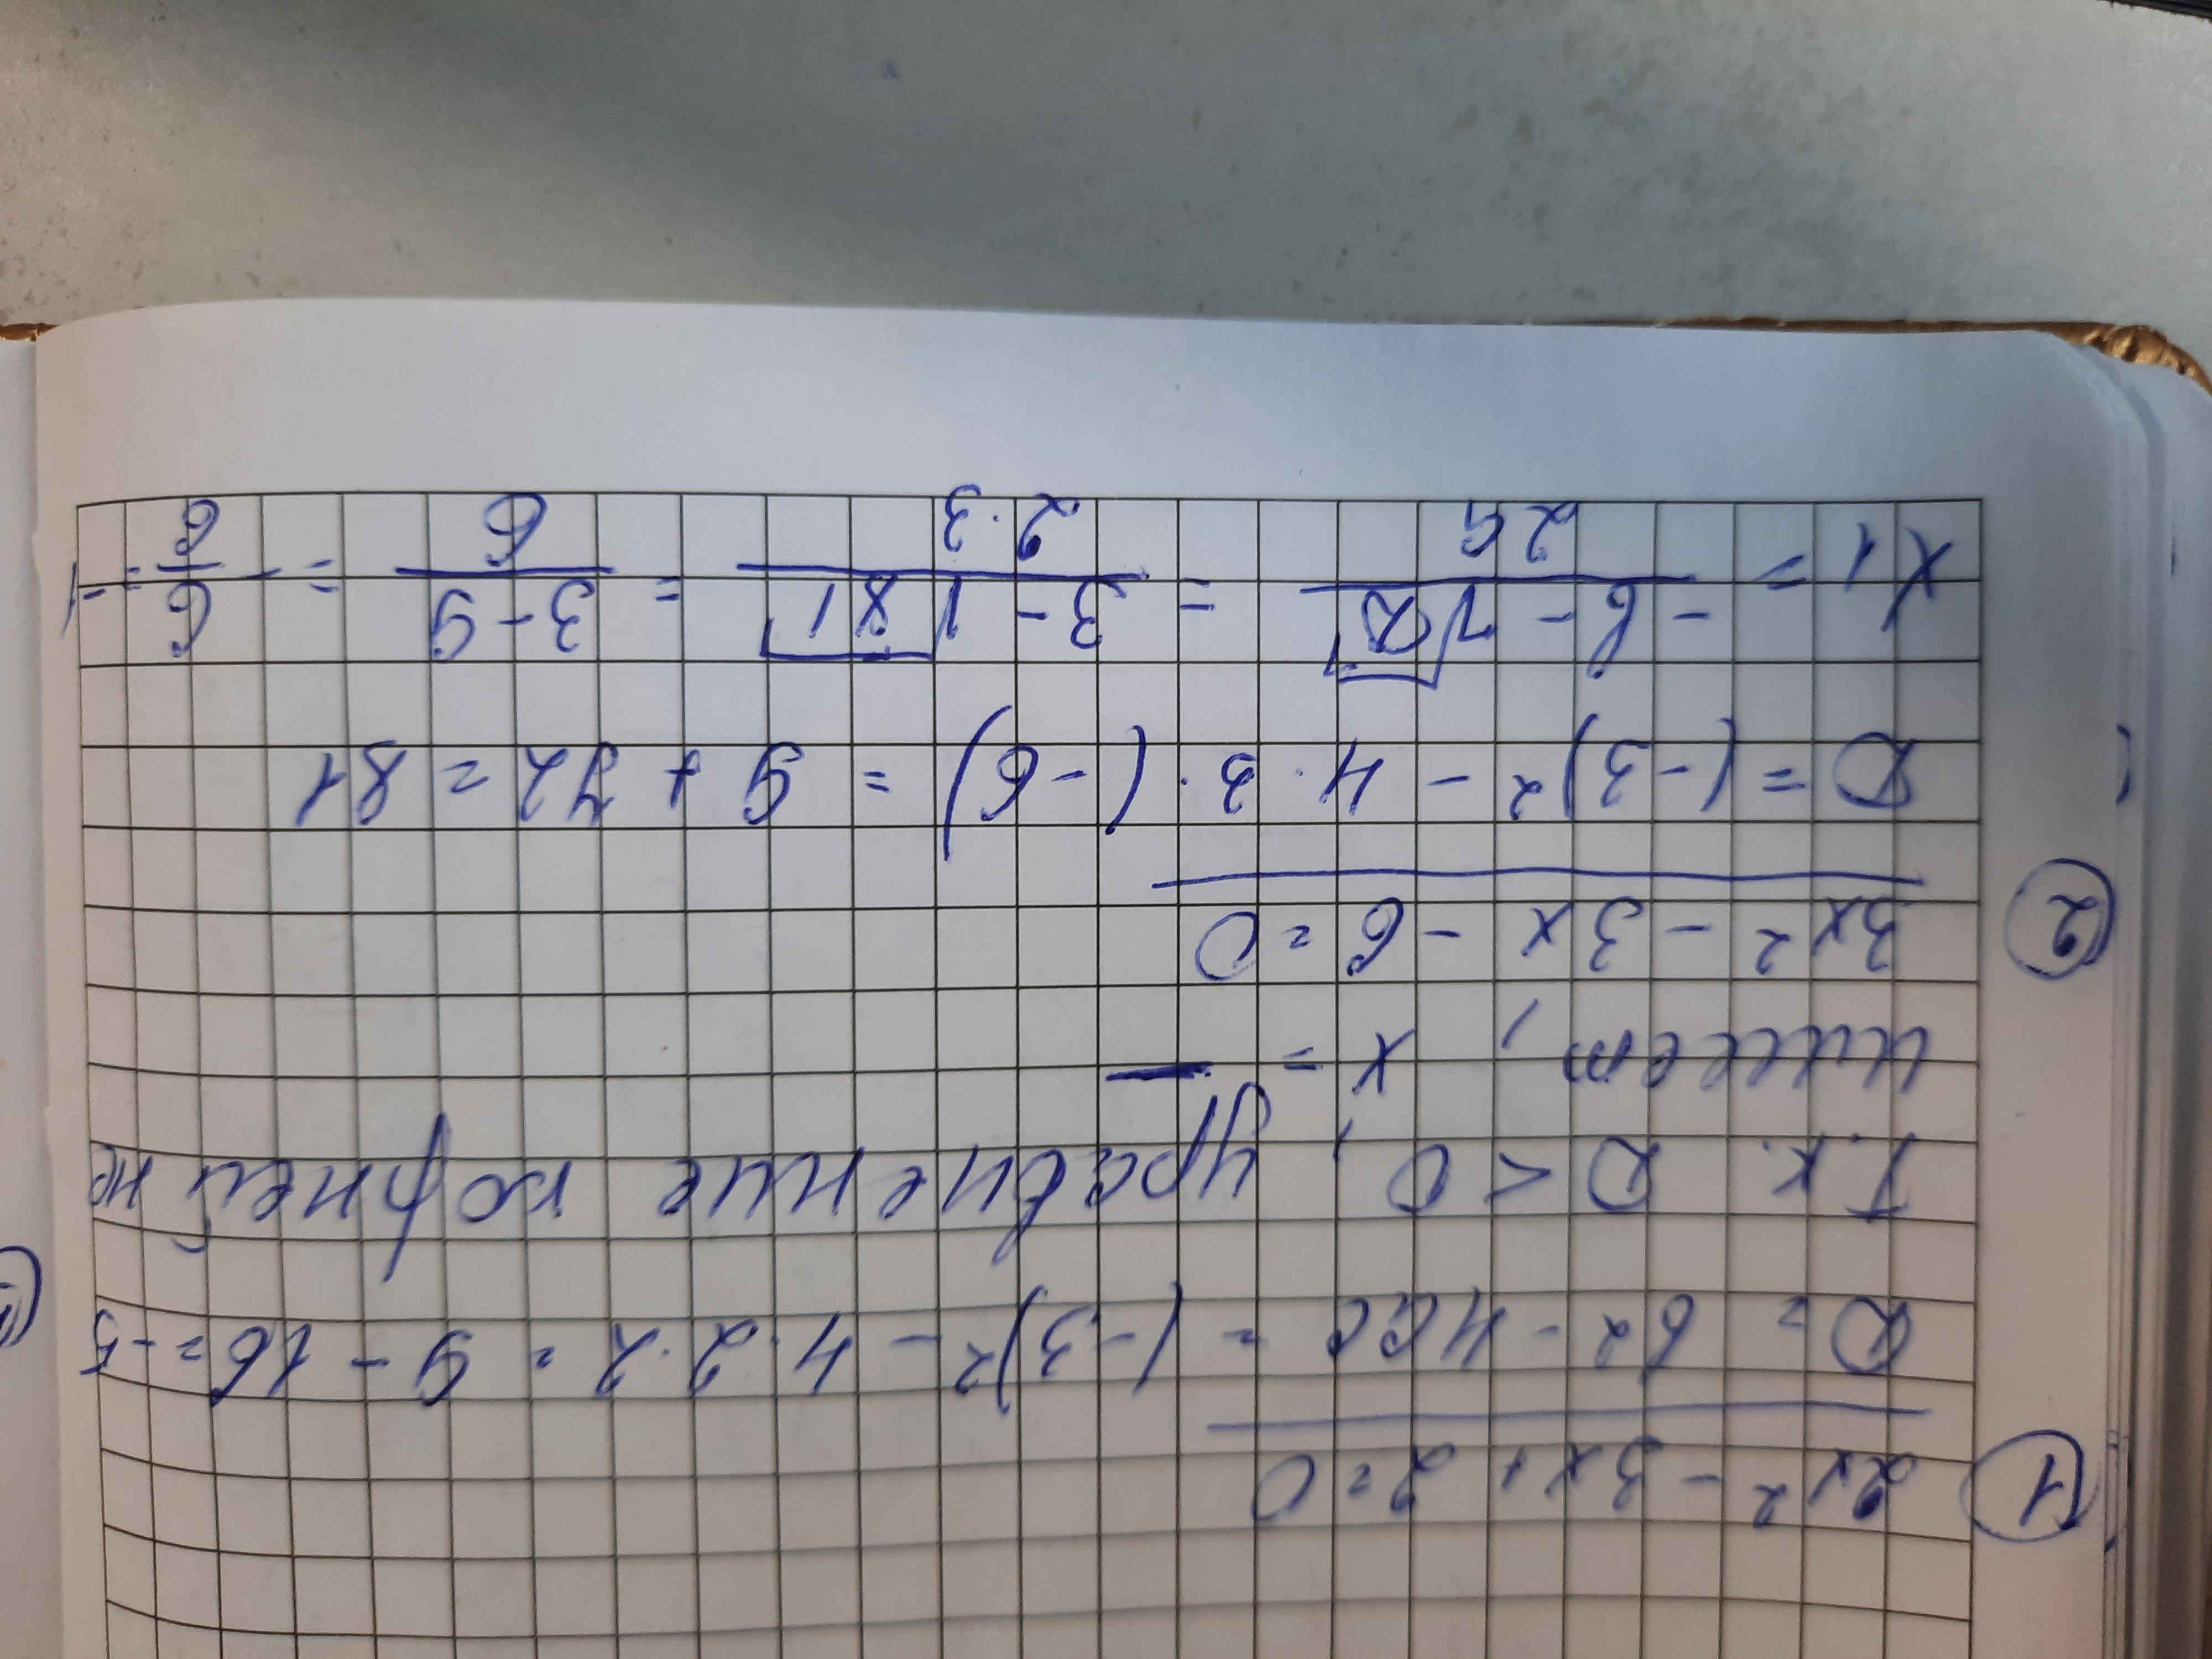 ① 2x² - 3x + 2 = 0
D = b² - 4ac = (-3)² - 4·2·2 = 9 - 16 = -5
Т.к. D < 0, уравнение корней не
имеет, x = —
② 3x² - 3x - 6 = 0
D = (-3)² - 4·3·(-6) = 9 + 72 = 81
x1 = (-b - √D)/2a = (3 - √81)/(2·3) = (3 - 9)/6 = -6/6 = -1